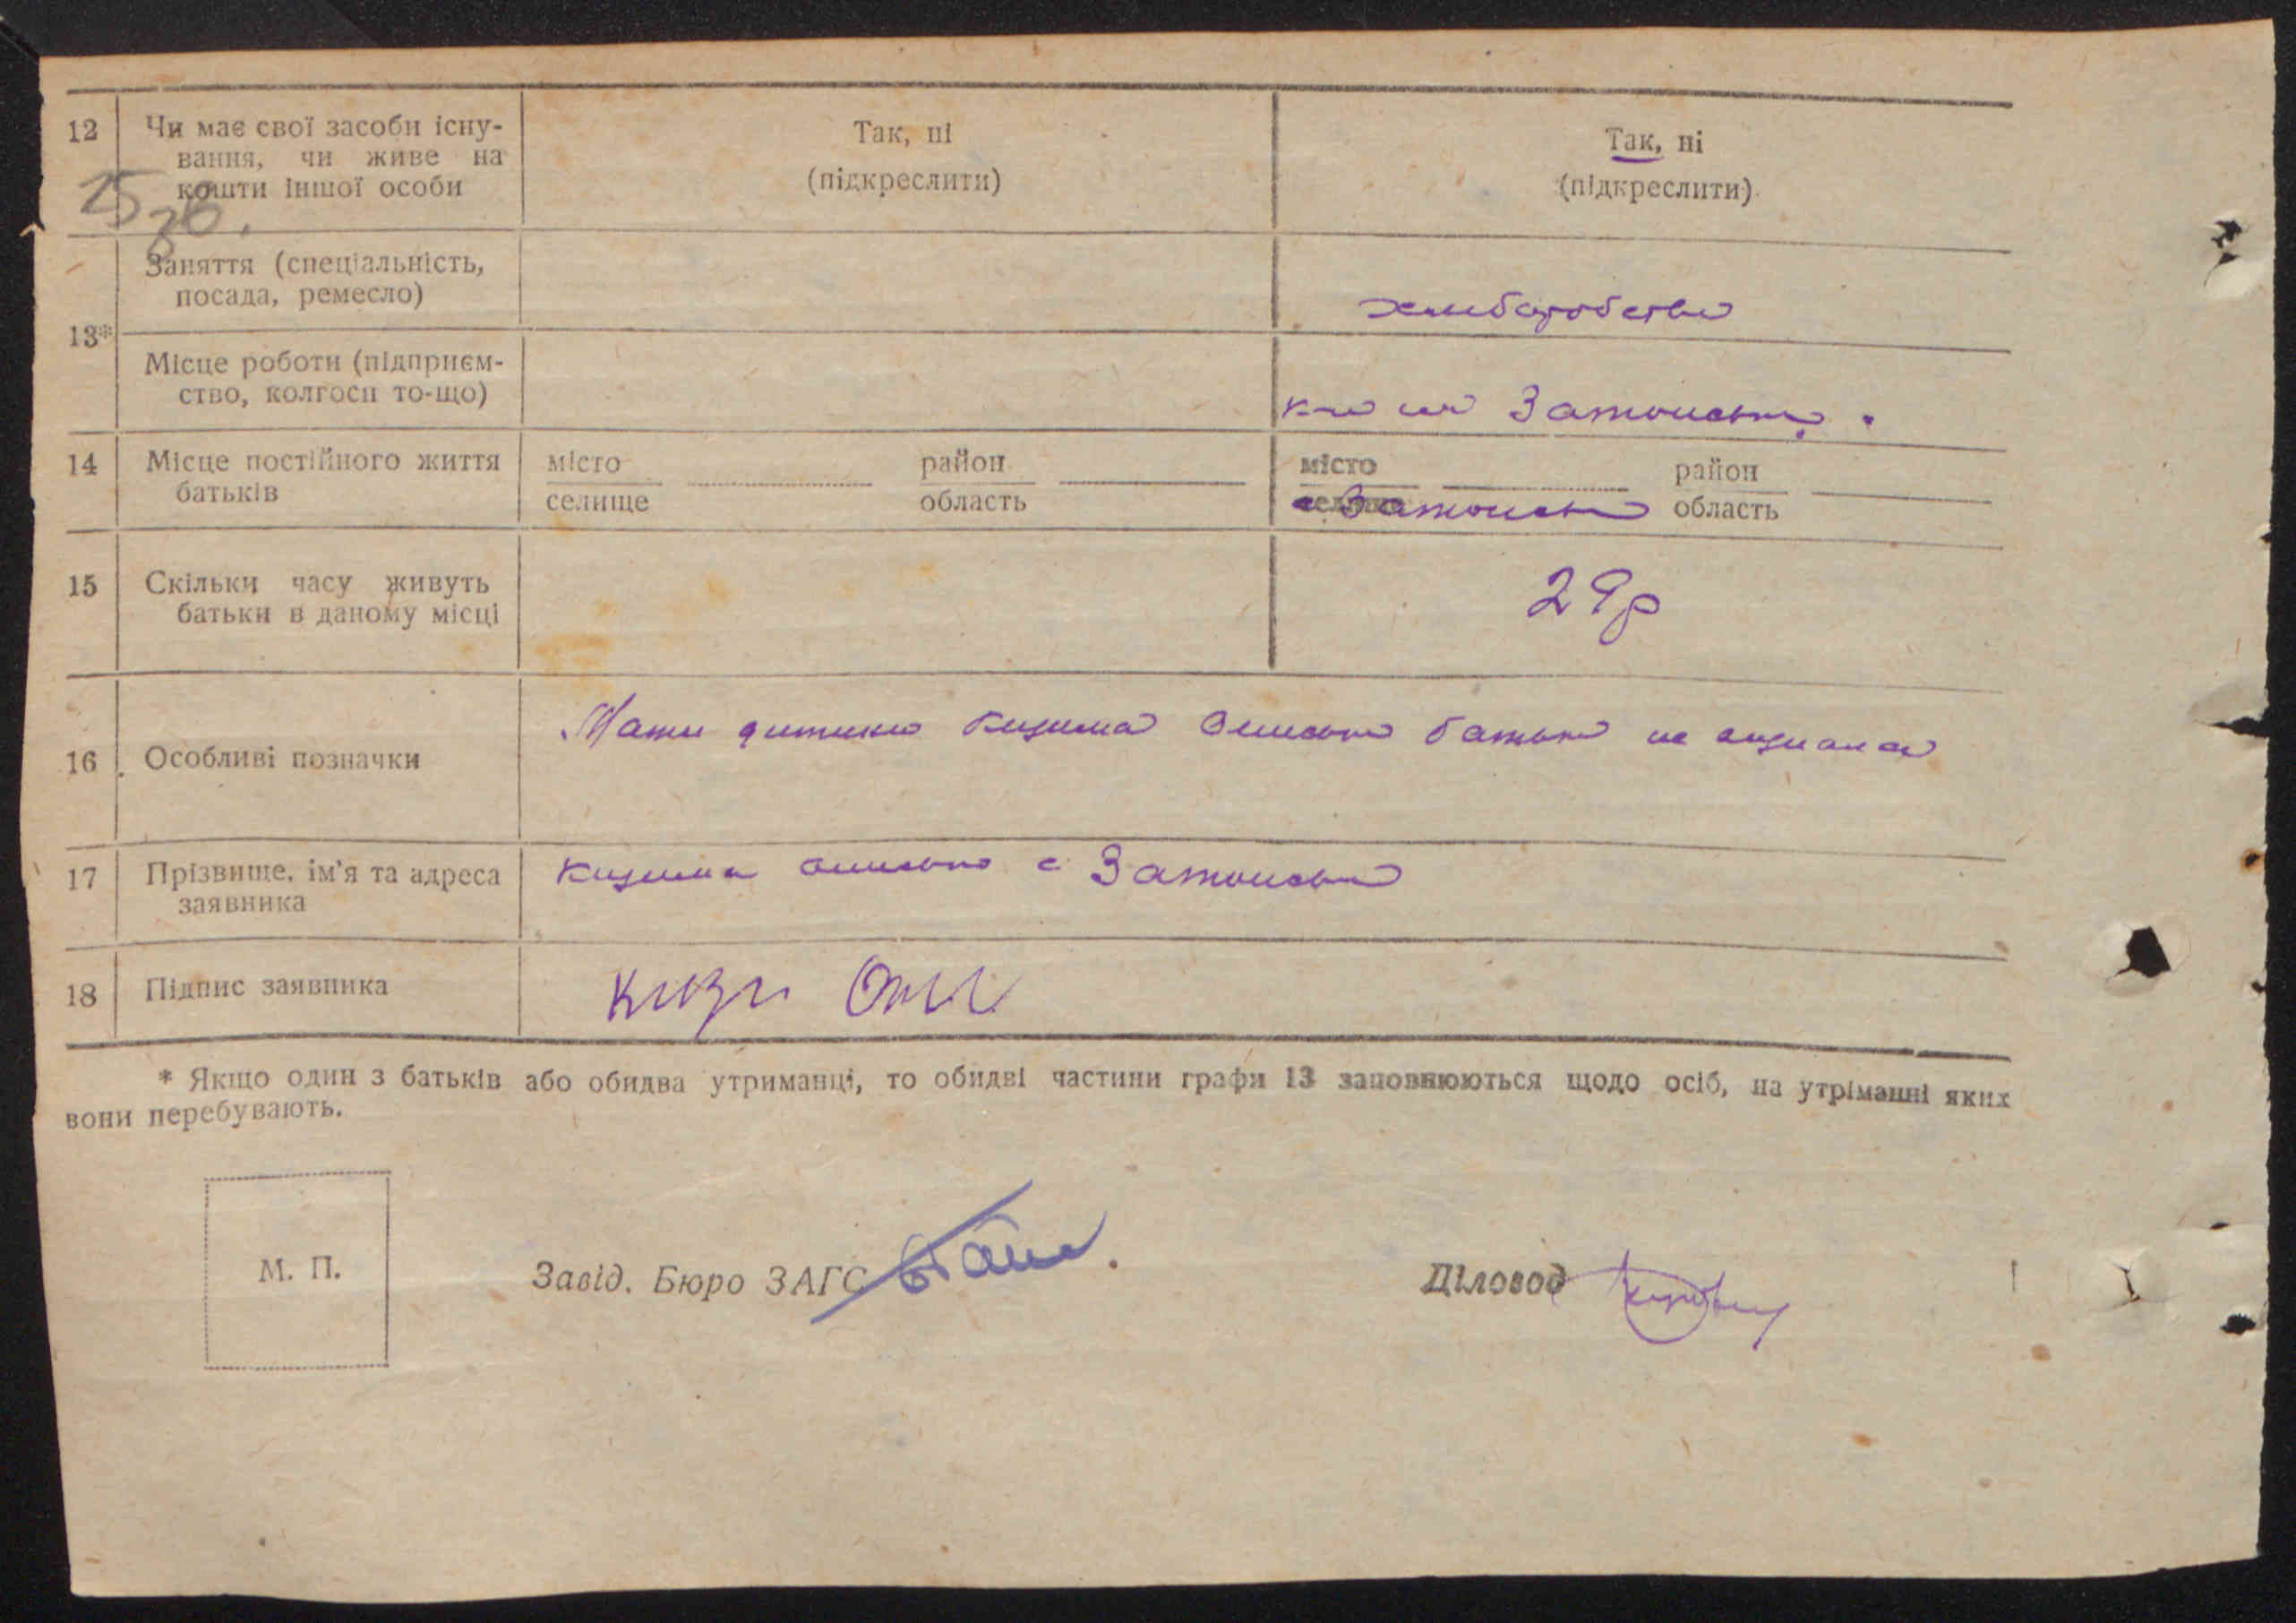 12 Чи має свої засоби існу-
вання, чи живе на
кошти іншої особи
Так, ні
(підкреслити)
Так, ні
(підкреслити)
13*
Заняття (спеціальність,
посада, ремесло)
хлиборобство
Місце роботи (підприєм-
ство, колгосп то-що)
Затонськ
14 Місце постійного життя
батьків
місто
селище
район
область
місто
селище
район
область
с Затонськ
15 Скільки часу живуть
батьки в даному місці
29р
16 Особливі позначки
Мати дитини Кизима батько не
17 Прізвище, ім'я та адреса
заявника
Кизима с Затонськ
18 Підпис заявника
Кизи
* Якщо один з батьків або обидва утриманці, то обидві частини графи 13 заповнюються щодо осіб, на утріманні яких
вони перебувають.
М. П.
Завід. Бюро ЗАГС
Діловод